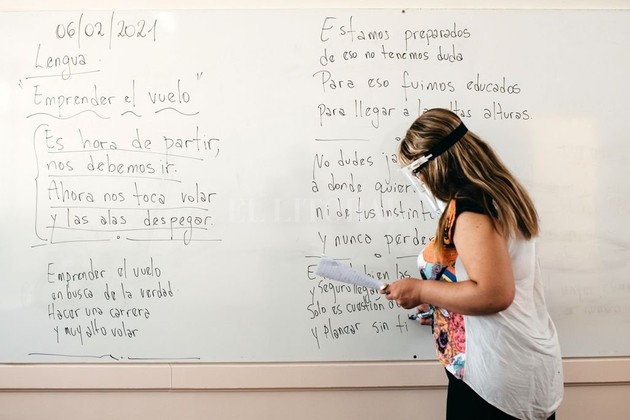 06/02/2021
Lengua.
"Emprender el vuelo"
Es hora de partir,
nos debemos ir.
Ahora nos toca volar
y las alas despegar.
Emprender el vuelo
en busca de la verdad
Hacer una carrera
y muy alto volar
Estamos preparados
de eso no tenemos duda
Para eso fuimos educados
para llegar a las altas alturas.
No dudes
a donde
ni de tus
y nunca
bien
y seguro
Solo es cuestión
y planear sin